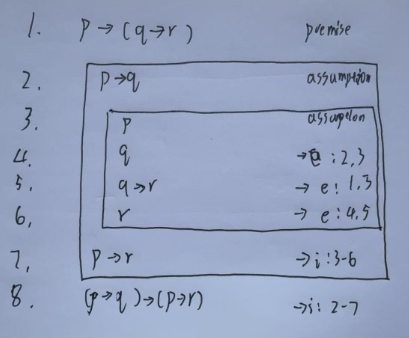 1. p→(q→r) premise
2. p→q assumption
3. p assumption
4. q →e:2,3
5. q→r →e:1,3
6. r →e:4,5
7. p→r →i:3-6
8. (p→q)→(p→r) →i:2-7